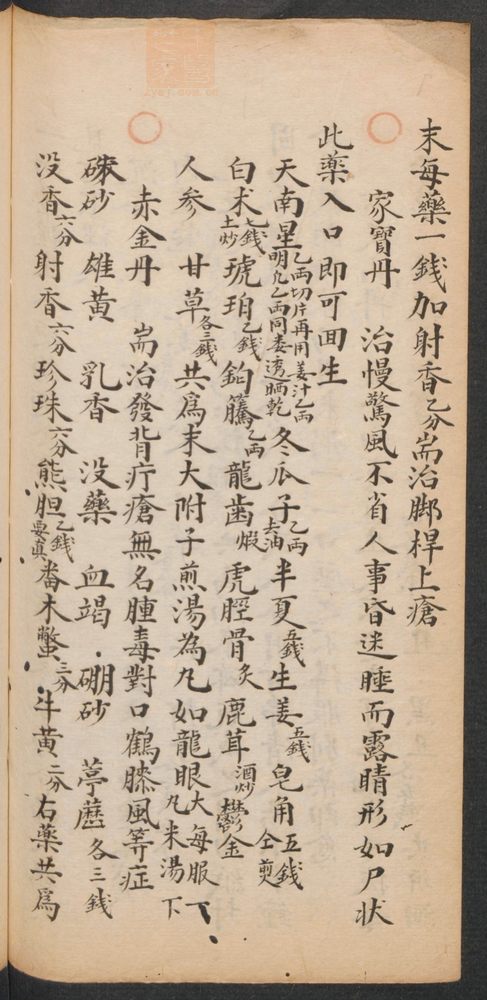 末每藥一錢加射香乙分耑治脚桿上瘡
家寶丹　治慢驚風不省人事昏迷睡而露睛形如尸状
此藥入口即可回生
天南星乙両切片再用姜汁乙両明凡乙両同煑透晒乾冬瓜子乙両去油半夏五錢生姜五錢皂角五錢仝煎
白术七錢土炒琥珀乙錢鈎籐乙両龍歯煅虎脛骨炙鹿茸酒炒鬱金
人参　甘草各三錢共爲末大附子煎湯為凡如龍眼大每服一凡米湯下
赤金丹　耑治發背疔瘡無名腫毒對口鶴膝風等症
硃砂　雄黃　乳香　没藥　血竭　硼砂　葶藶各三錢
没香六分射香六分珍珠六分熊胆乙錢要真番木鱉三分牛黃二分右藥共爲